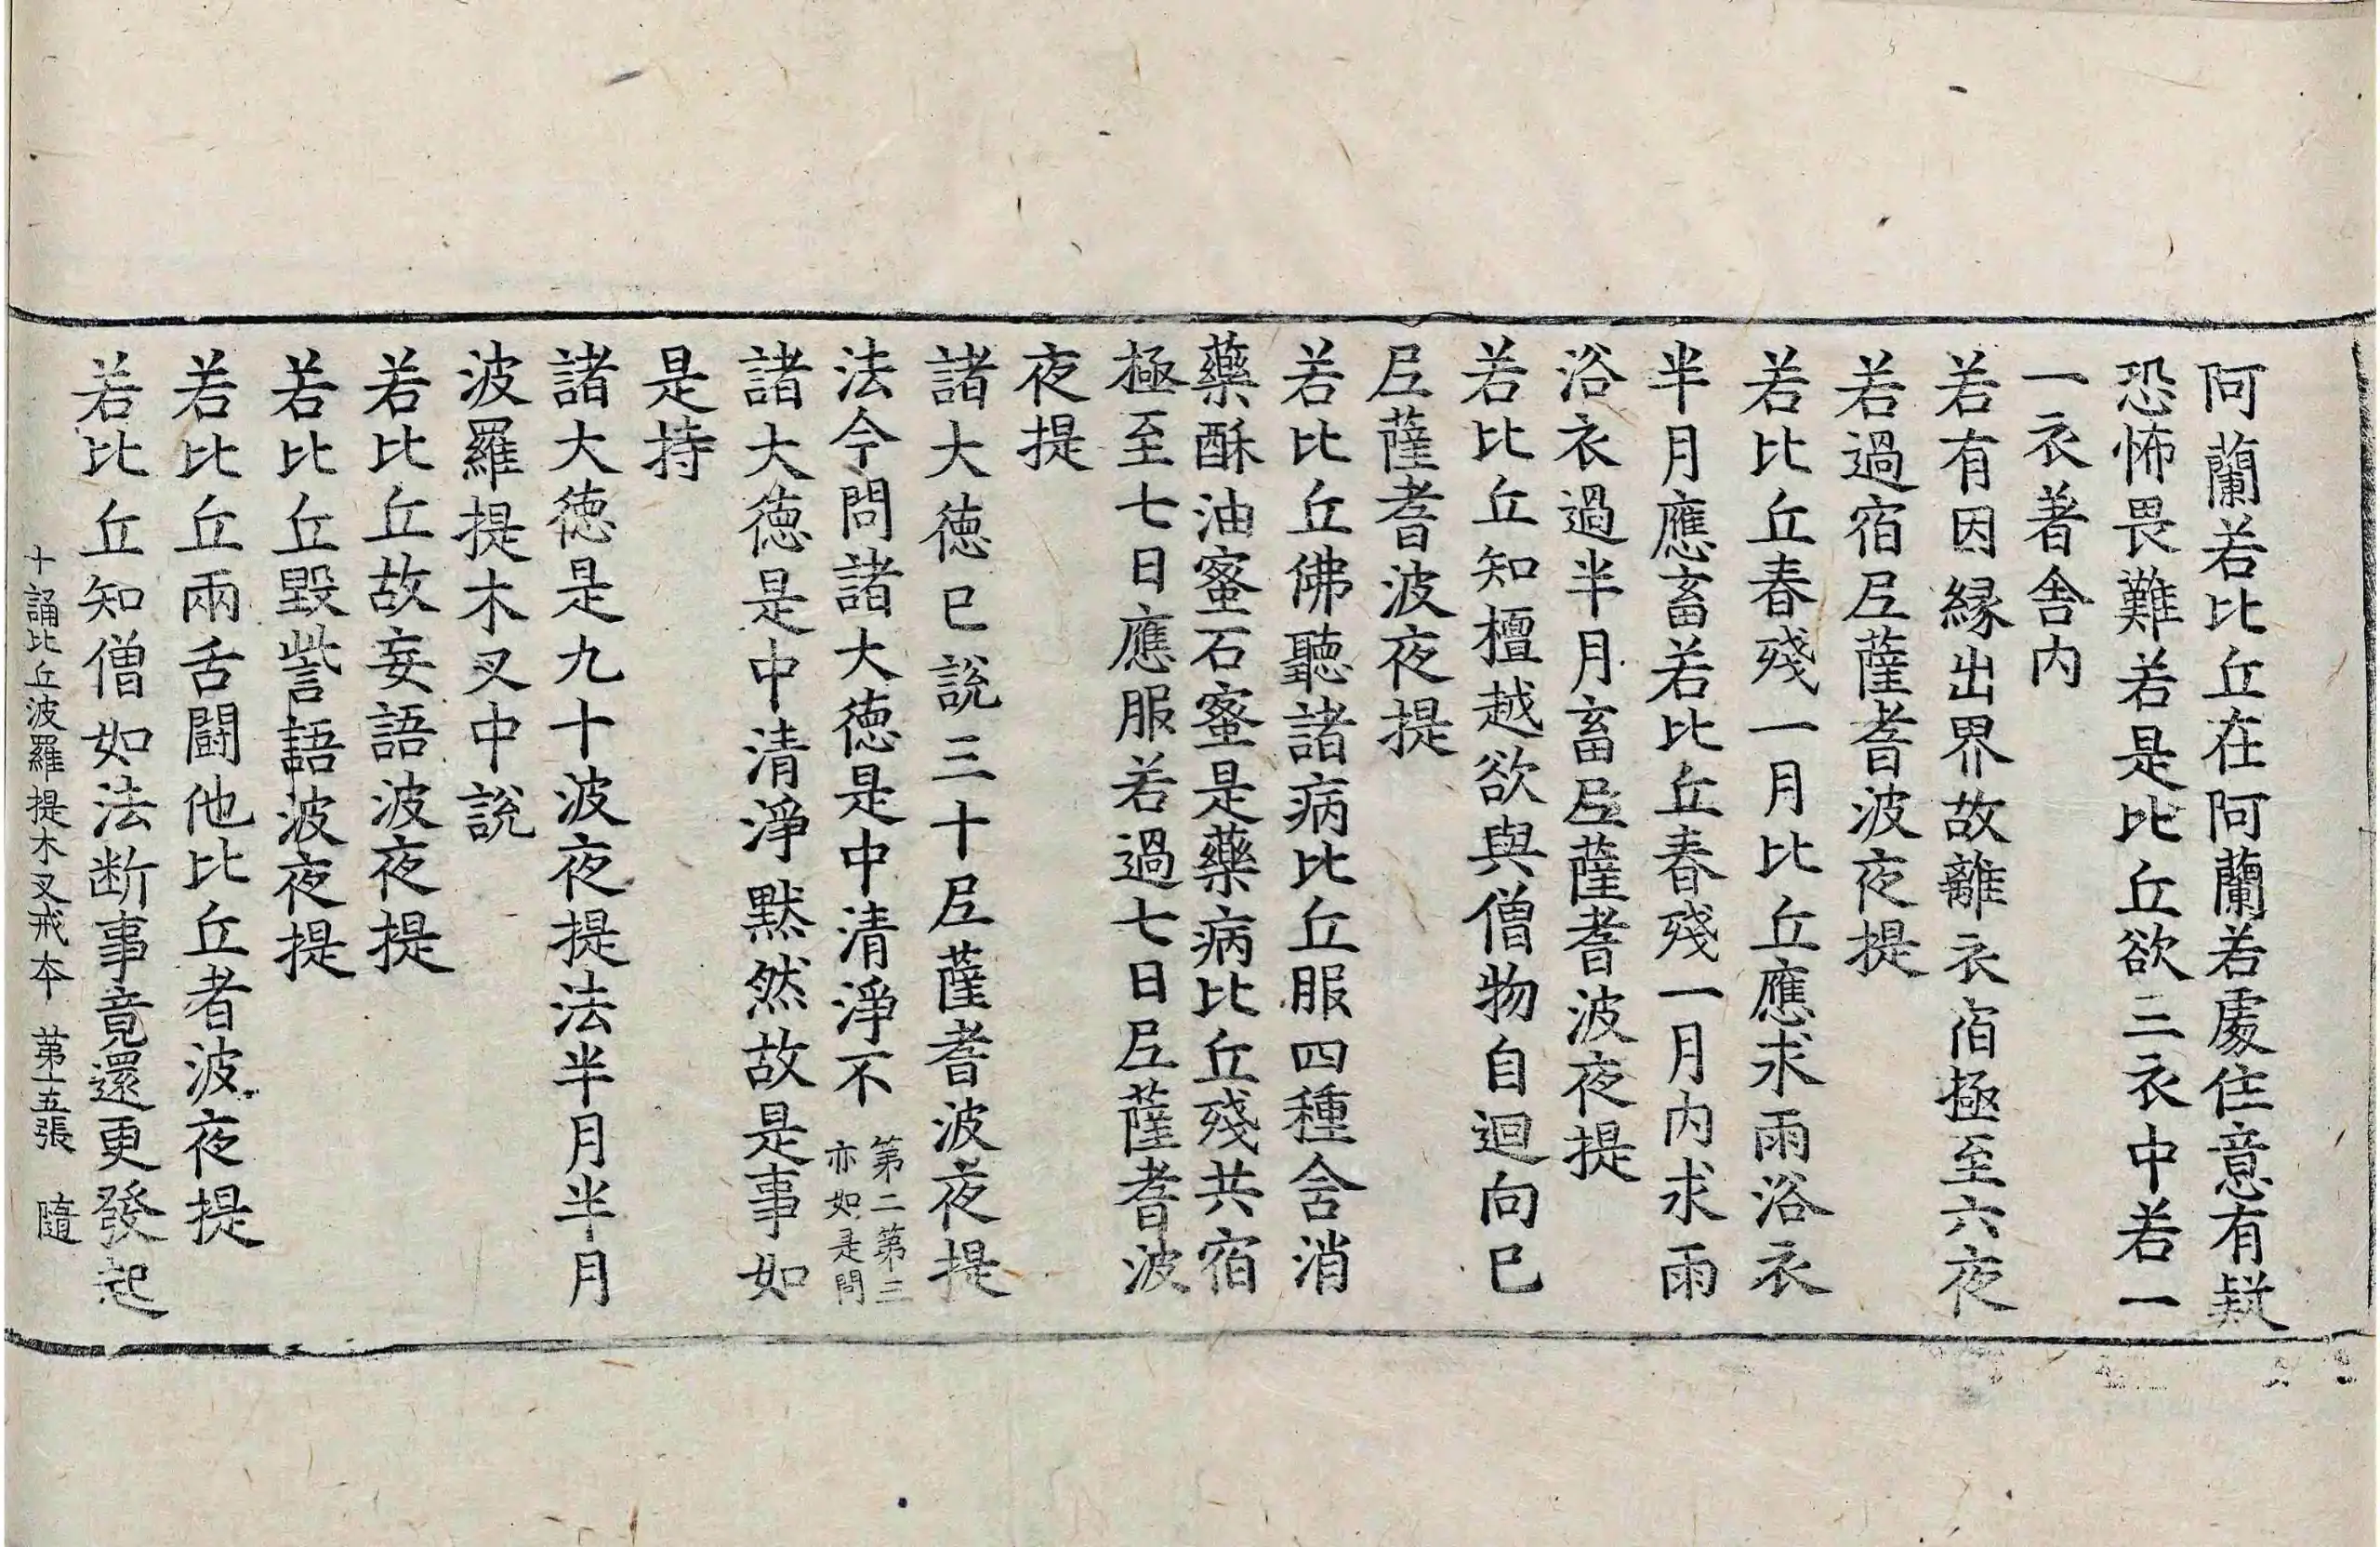 阿蘭若比丘在阿蘭若處住意有疑
恐怖畏難若是比丘欲三衣中若一
一衣著舍内
若有因緣出界故離衣宿極至六夜
若過宿尼薩耆波夜提
若比丘春殘一月比丘應求雨浴衣
半月應畜若比丘春殘一月内求雨
浴衣過半月畜尼薩耆波夜提
若比丘知檀越欲與僧物自迴向已
尼薩耆波夜提
若比丘佛聽諸病比丘服四種含消
藥酥油蜜石蜜是藥病比丘殘共宿
極至七日應服若過七日尼薩耆波
夜提
諸大德已說三十尼薩耆波夜提
法今問諸大德是中清淨不第二第三亦如是問
諸大德是中清淨默然故是事如
是持
諸大德是九十波夜提法半月半月
波羅提木叉中說
若比丘故妄語波夜提
若比丘毀呰語波夜提
若比丘兩舌鬪他比丘者波夜提
若比丘知僧如法断事竟還更發起
十誦比丘波羅提木叉戒本 第十五張 隨